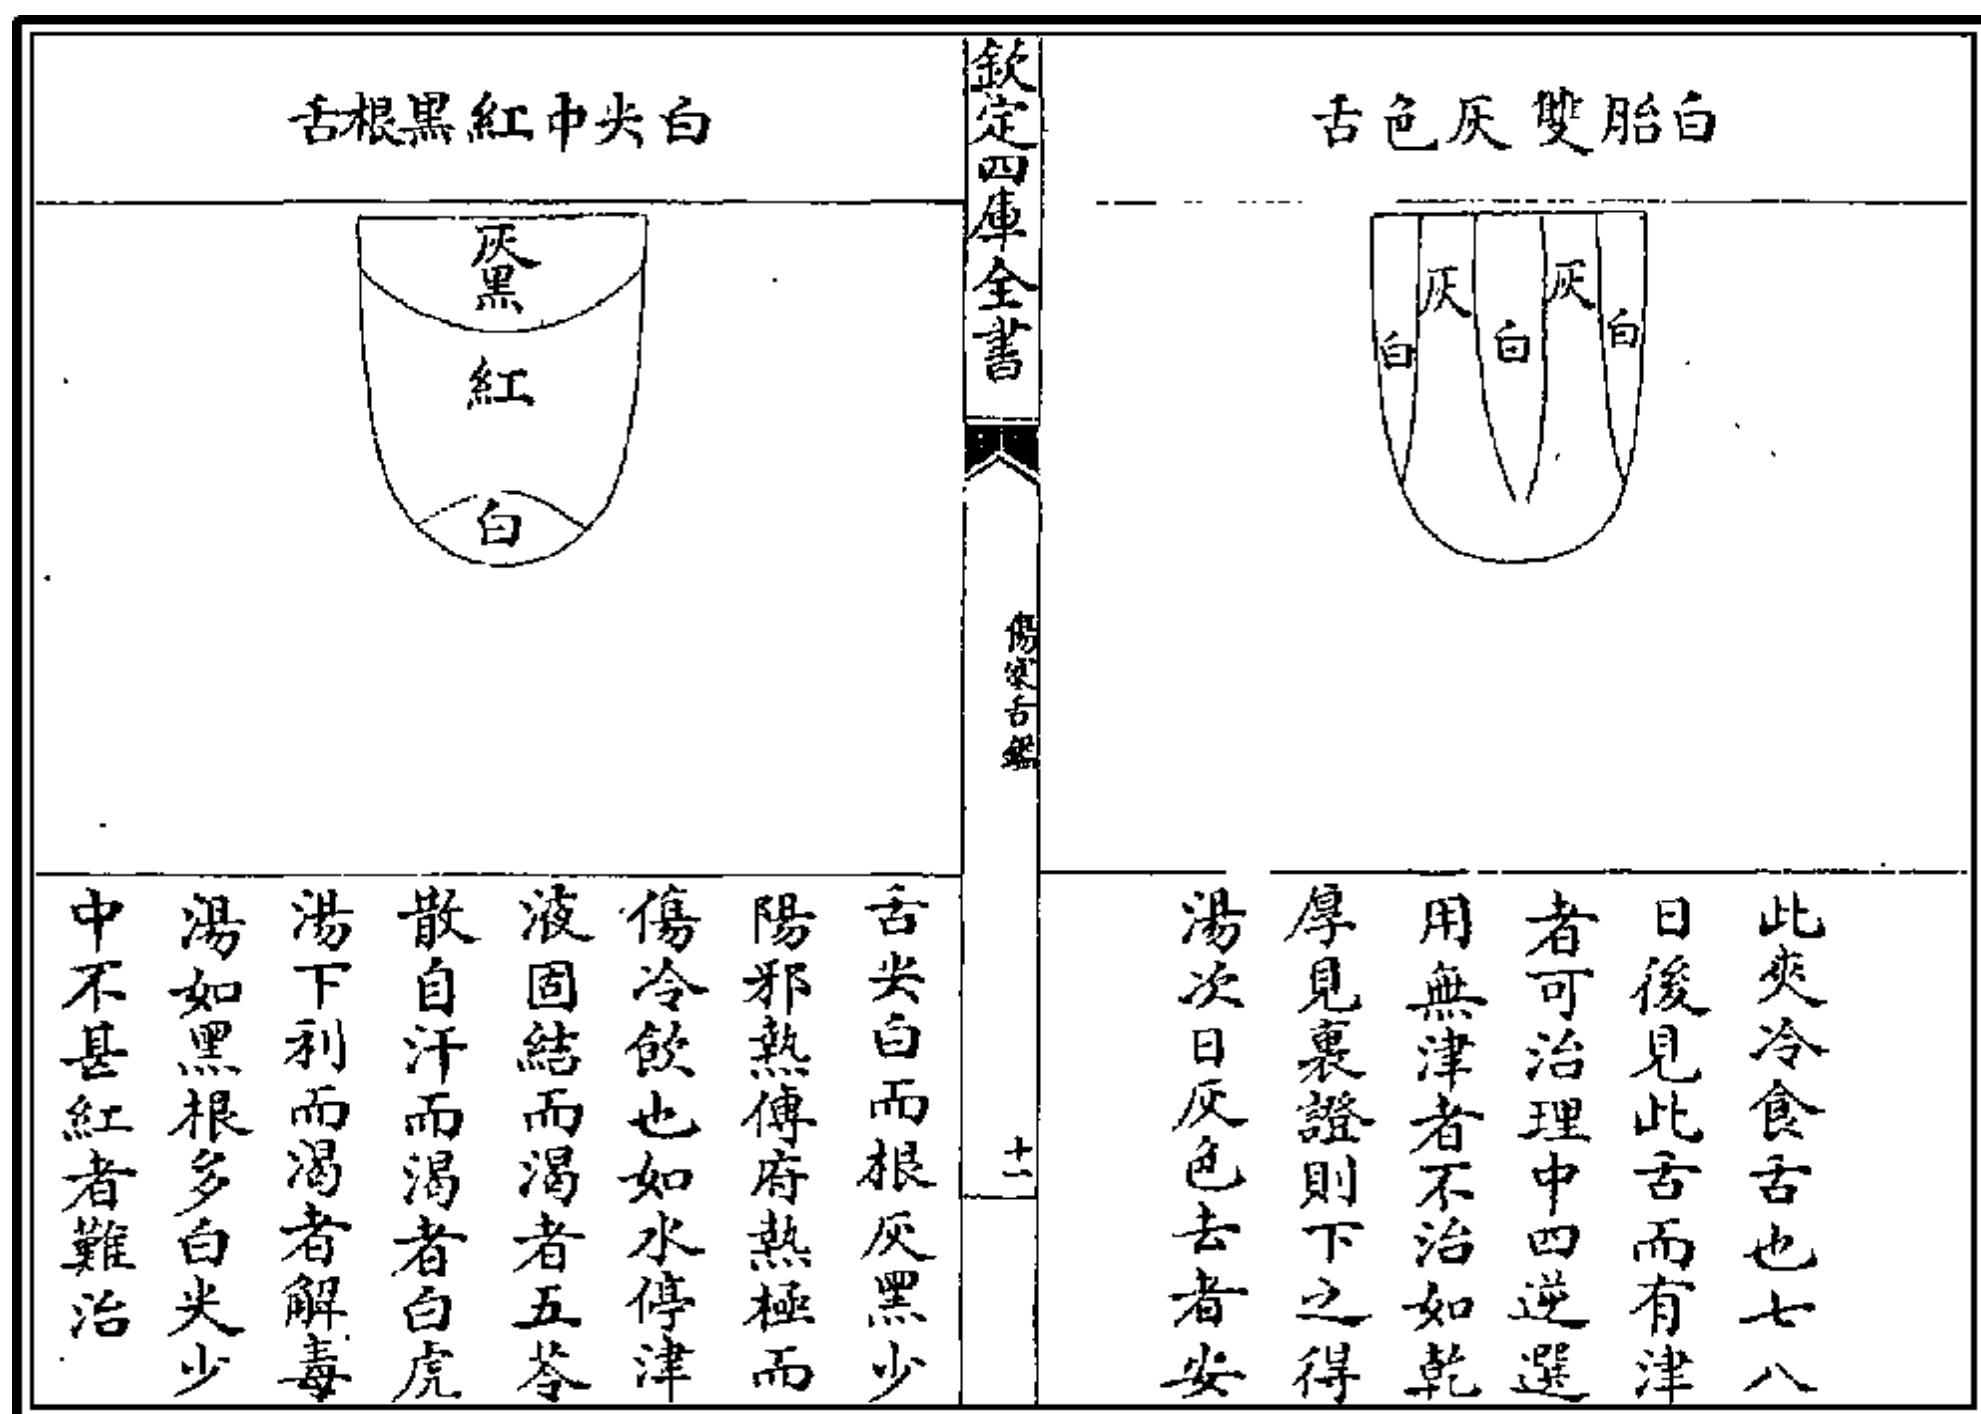 白胎雙灰色舌
灰
灰
白
白
白
此夾冷食舌也七八
日後見此舌而有津
者可治理中四逆選
用無津者不治如乾
厚見裏證則下之得
湯次日灰色去者安
欽定四庫全書
傷寒舌鑑
十一
白尖中紅黑根舌
灰黑
紅
白
舌尖白而根灰黑少
陽邪熱傳府熱極而
傷冷飲也如水停津
液固結而渴者五苓
散自汗而渴者白虎
湯下利而渴者解毒
湯如黑根多白尖少
中不甚紅者難治